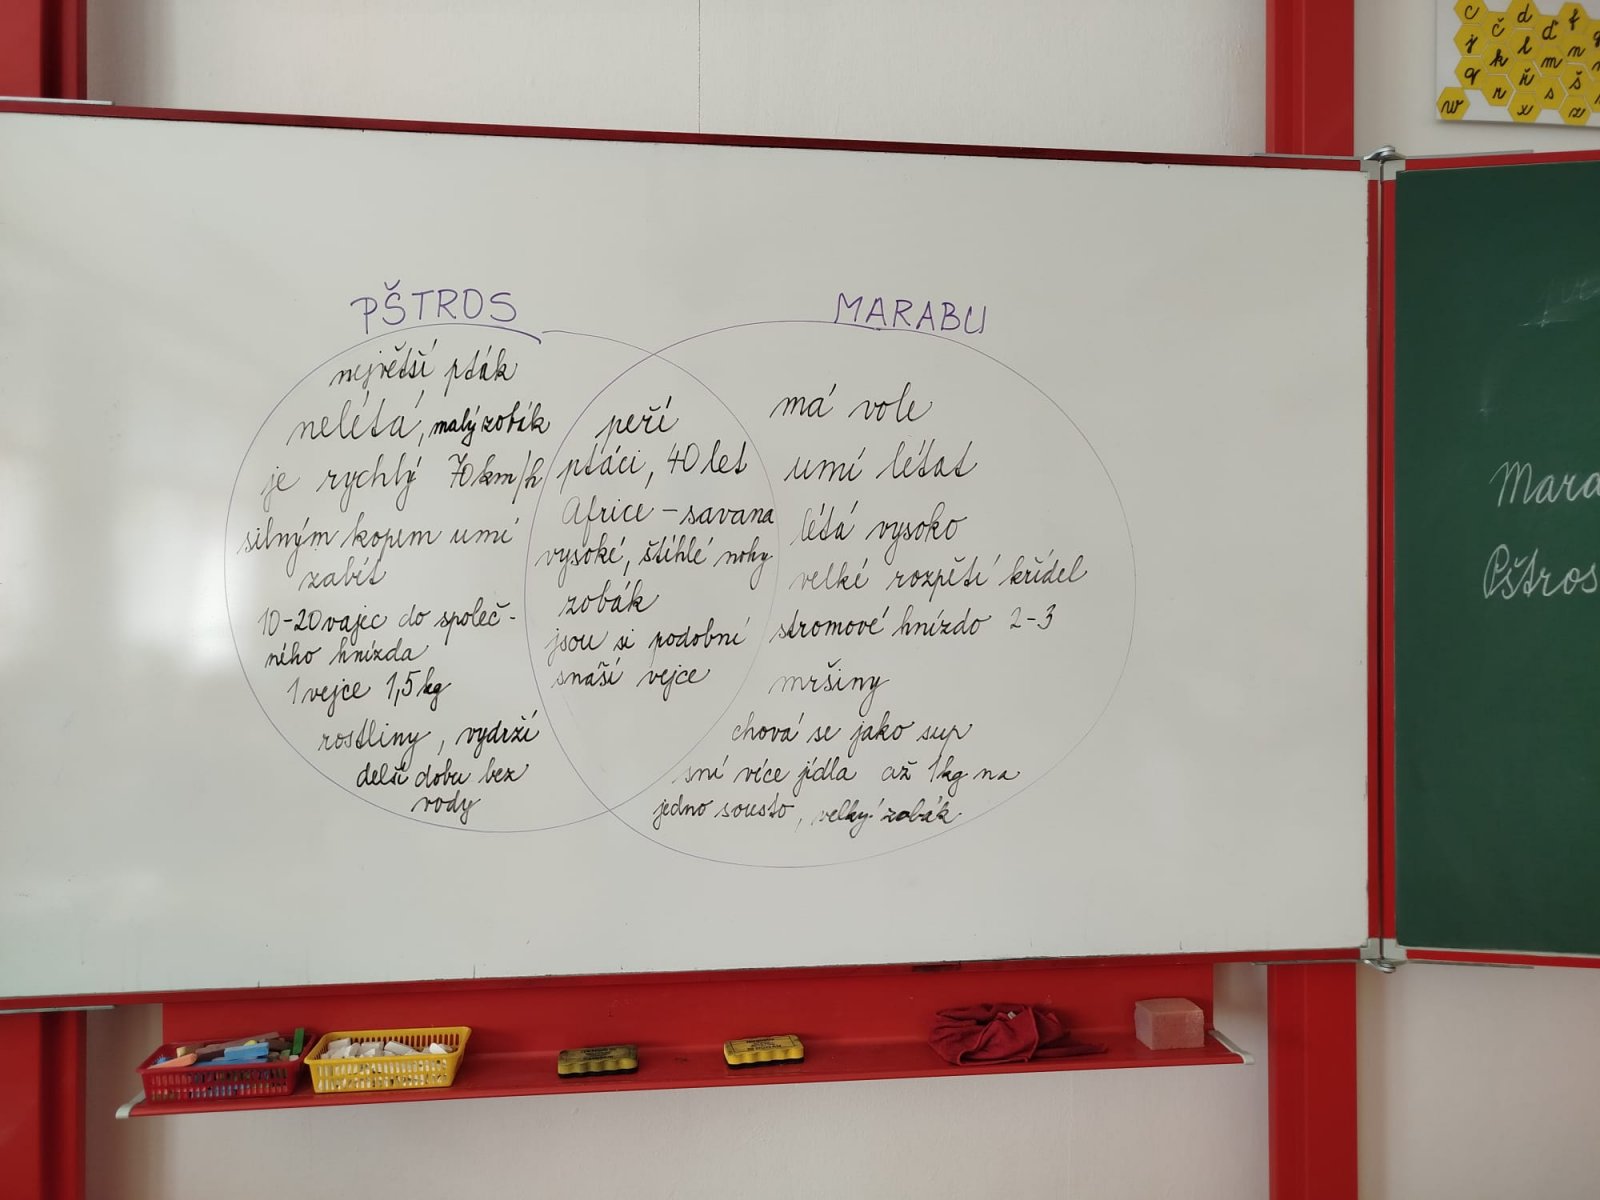 PŠTROS
největší pták
nelétá, malý zobák
je rychlý 70km/h
silným kopem umí
zabít
10-20 vajec do společ-
ného hnízda
1 vejce 1,5 kg
rostliny, vydrží
delší dobu bez
vody
peří
ptáci, 40 let
Africe - savana
vysoké, štíhlé nohy
zobák
jsou si podobní
snáší vejce
MARABU
má vole
umí létat
létá vysoko
velké rozpětí křídel
stromové hnízdo 2-3
mršiny
chová se jako sup
sní více jídla až 1kg na
jedno sousto, velký zobák
Mara
Pštros
c č d ď f
j k l m n
q r ř s š
w x z